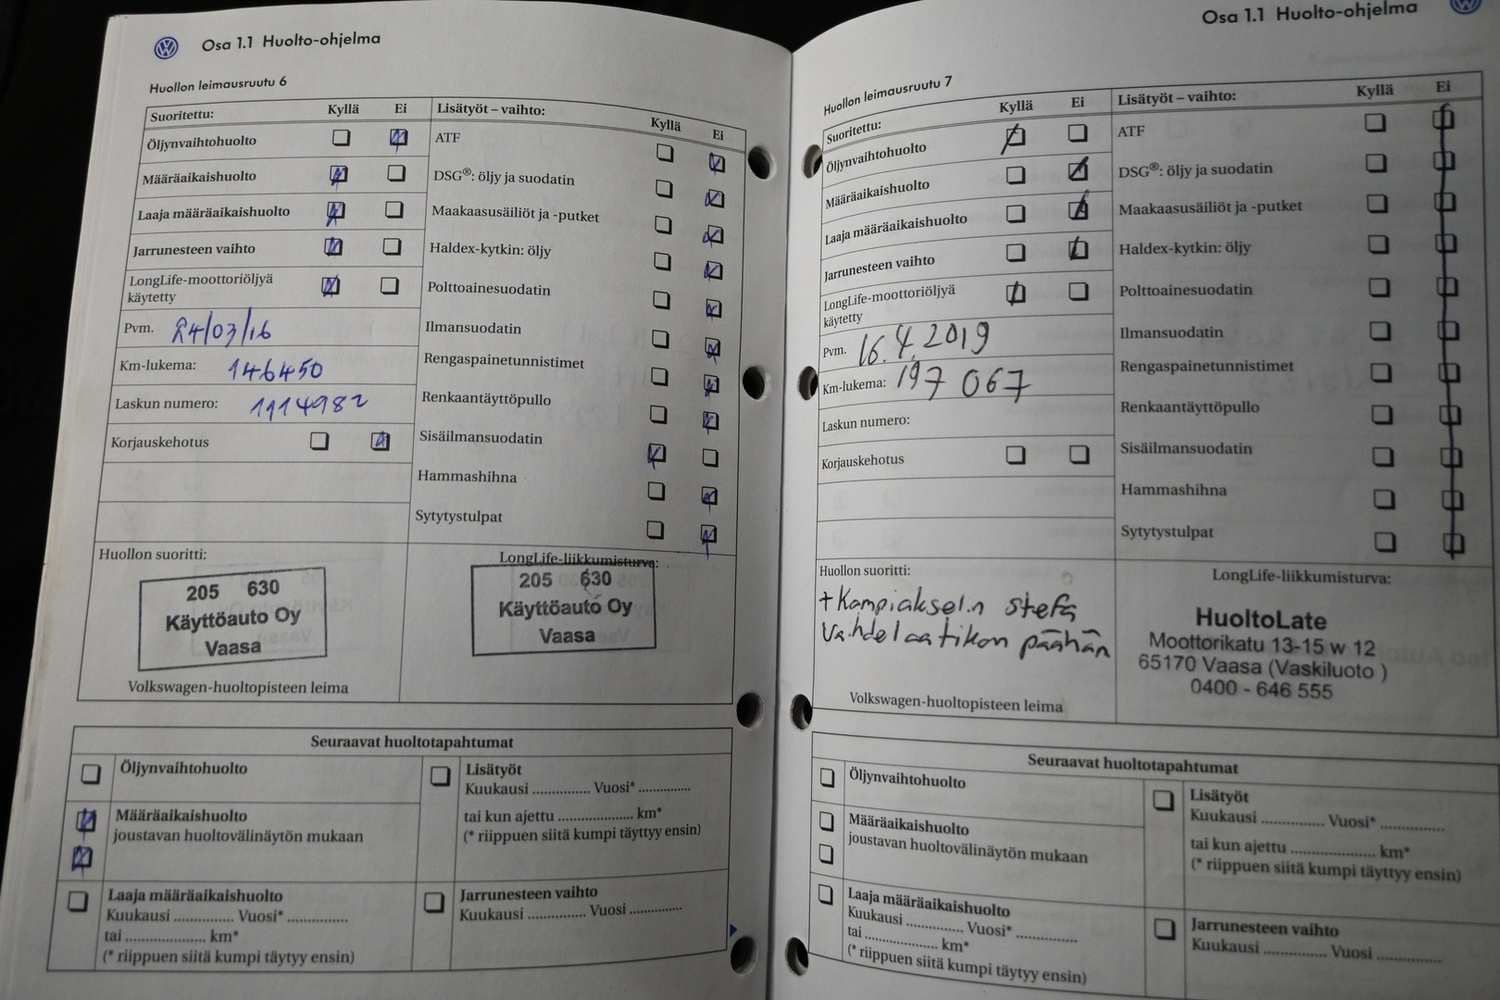 Osa 1.1 Huolto-ohjelma
Huollon leimausruutu 6
Suoritettu: Kyllä Ei
Öljynvaihtohuolto
Määräaikaishuolto
Laaja määräaikaishuolto
Jarrunesteen vaihto
LongLife-moottoriöljyä
käytetty
Pvm. 24/03/16
Km-lukema: 146450
Laskun numero: 1114982
Korjauskehotus
Lisätyöt – vaihto: Kyllä Ei
ATF
DSG®: öljy ja suodatin
Maakaasusäiliöt ja -putket
Haldex-kytkin: öljy
Polttoainesuodatin
Ilmansuodatin
Rengaspainetunnistimet
Renkaantäyttöpullo
Sisäilmansuodatin
Hammashihna
Sytytystulpat
Huollon suoritti:
205 630
Käyttöauto Oy
Vaasa
Volkswagen-huoltopisteen leima
LongLife-liikkumisturva:
205 630
Käyttöauto Oy
Vaasa
Seuraavat huoltotapahtumat
Öljynvaihtohuolto
Määräaikaishuolto
joustavan huoltovälinäytön mukaan
Laaja määräaikaishuolto
Kuukausi .............. Vuosi* ..............
tai .................... km*
(* riippuen siitä kumpi täytyy ensin)
Lisätyöt
Kuukausi .............. Vuosi* ..............
tai kun ajettu .................... km*
(* riippuen siitä kumpi täyttyy ensin)
Jarrunesteen vaihto
Kuukausi .............. Vuosi ..............
Osa 1.1 Huolto-ohjelma
Huollon leimausruutu 7
Suoritettu: Kyllä Ei
Öljynvaihtohuolto
Määräaikaishuolto
Laaja määräaikaishuolto
Jarrunesteen vaihto
LongLife-moottoriöljyä
käytetty
Pvm. 16.4.2019
Km-lukema: 197 067
Laskun numero:
Korjauskehotus
Lisätyöt – vaihto: Kyllä Ei
ATF
DSG®: öljy ja suodatin
Maakaasusäiliöt ja -putket
Haldex-kytkin: öljy
Polttoainesuodatin
Ilmansuodatin
Rengaspainetunnistimet
Renkaantäyttöpullo
Sisäilmansuodatin
Hammashihna
Sytytystulpat
Huollon suoritti:
+ Kampiakselin stefa
Vaihdelaatikon päähän
Volkswagen-huoltopisteen leima
LongLife-liikkumisturva:
HuoltoLate
Moottorikatu 13-15 w 12
65170 Vaasa (Vaskiluoto )
0400 - 646 555
Seuraavat huoltotapahtumat
Öljynvaihtohuolto
Määräaikaishuolto
joustavan huoltovälinäytön mukaan
Laaja määräaikaishuolto
Kuukausi .............. Vuosi* ..............
tai .................... km*
(* riippuen siitä kumpi täytyy ensin)
Lisätyöt
Kuukausi .............. Vuosi* ..............
tai kun ajettu .................... km*
(* riippuen siitä kumpi täyttyy ensin)
Jarrunesteen vaihto
Kuukausi .............. Vuosi ..............